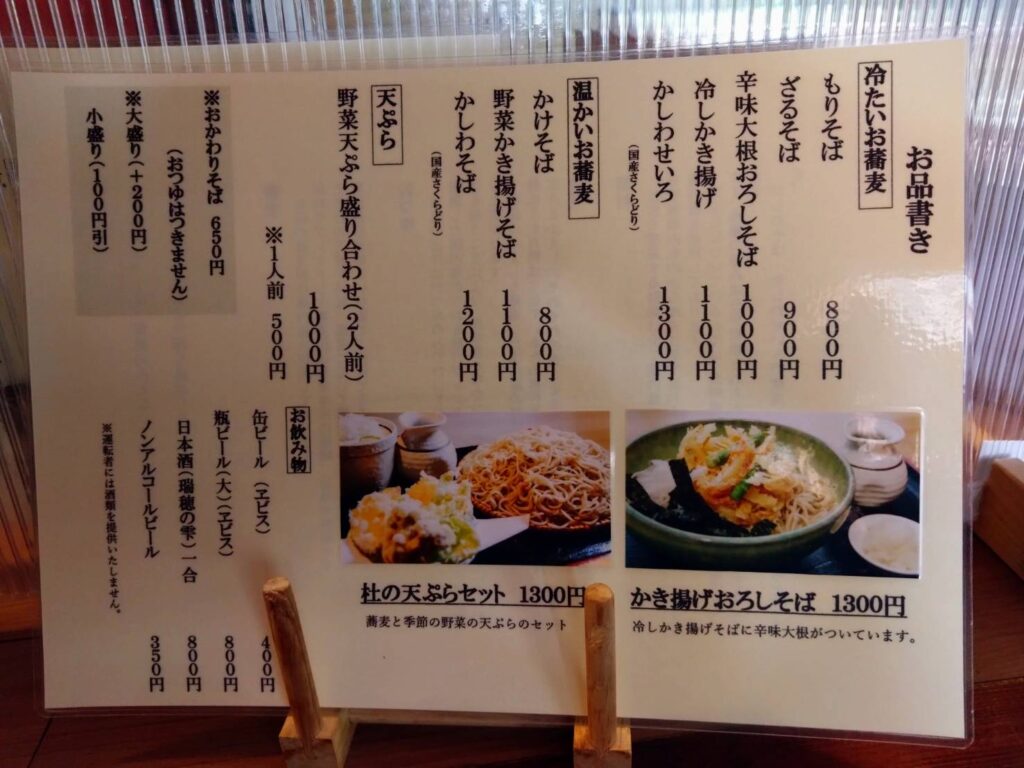 お品書き
冷たいお蕎麦
もりそば 800円
ざるそば 900円
辛味大根おろしそば 1000円
冷しかき揚げ 1100円
かしわせいろ 1300円
(国産さくらどり)
温かいお蕎麦
かけそば 800円
野菜かき揚げそば 1100円
かしわそば 1200円
(国産さくらどり)
天ぷら
野菜天ぷら盛り合わせ(2人前)
1000円
※1人前 500円
※おかわりそば 650円
(おつゆはつきません)
※大盛り(+200円)
小盛り(100円引)
かき揚げおろしそば 1300円
冷しかき揚げそばに辛味大根がついています。
杜の天ぷらセット 1300円
蕎麦と季節の野菜の天ぷらのセット
お飲み物
缶ビール (ヱビス) 400円
瓶ビール(大)(ヱビス) 800円
日本酒(瑞穂の雫)一合 800円
ノンアルコールビール 350円
※運転者には酒類を提供いたしません。